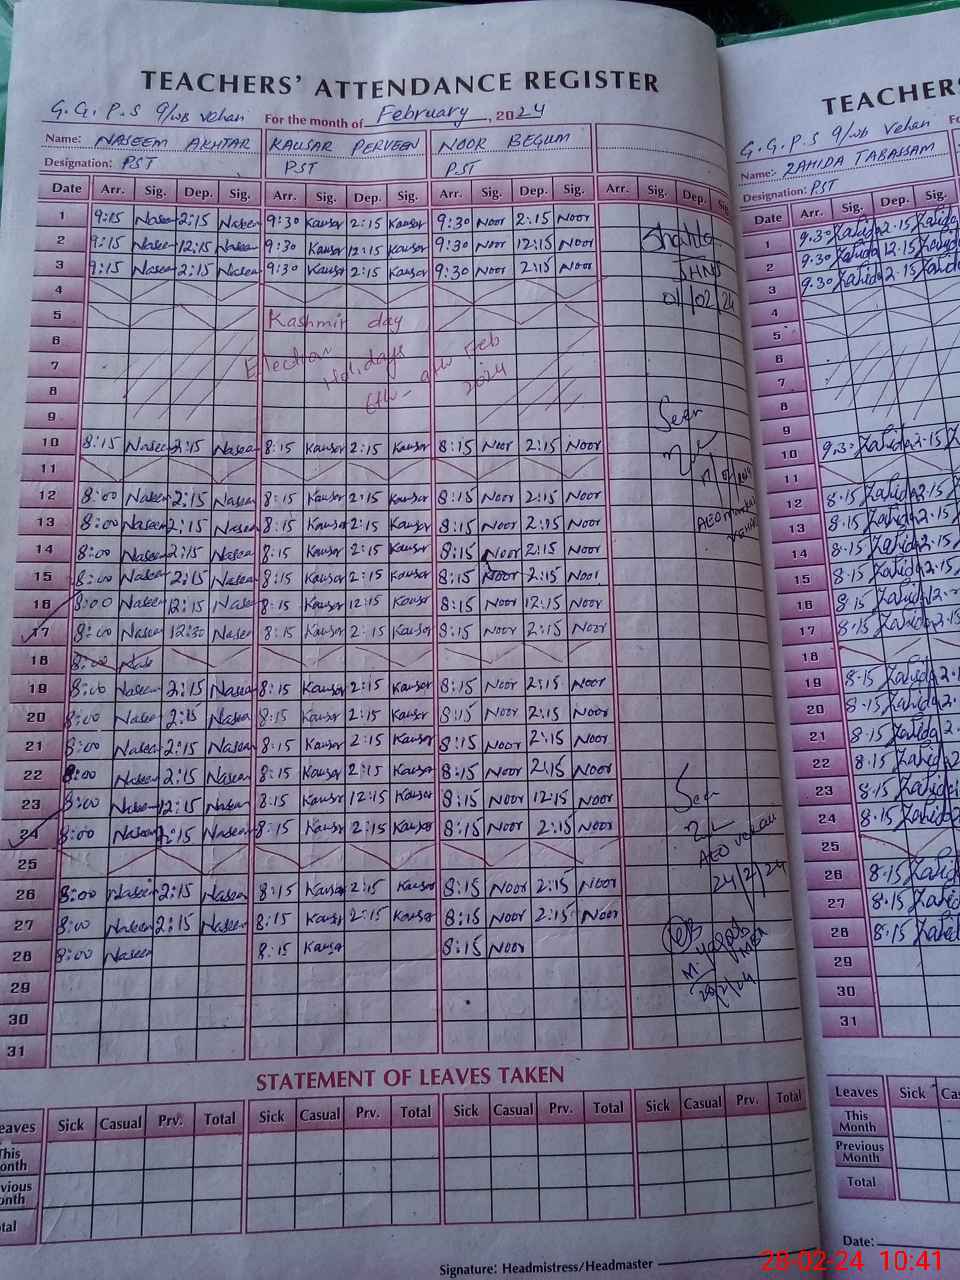 TEACHERS' ATTENDANCE REGISTER
G.G.P.S 9/WB Vehari For the month of February, 2024
Name: NASEEM AKHTAR KAUSAR PERVEEN NOOR BEGUM
Designation: PST PST PST
Date Arr. Sig. Dep. Sig. Arr. Sig. Dep. Sig. Arr. Sig. Dep. Sig. Arr. Sig. Dep. Sig.
1 9:15 Naseem 2:15 Naseem 9:30 Kausar 2:15 Kausar 9:30 Noor 2:15 Noor
2 9:15 Naseem 12:15 Naseem 9:30 Kausar 12:15 Kausar 9:30 Noor 12:15 Noor
3 9:15 Naseem 2:15 Naseem 9:30 Kausar 2:15 Kausar 9:30 Noor 2:15 Noor
4
5 Kashmir day
6 Election
7 Holidays
8 6th - 9th Feb
9 2024
10 8:15 Naseem 2:15 Naseem 8:15 Kausar 2:15 Kausar 8:15 Noor 2:15 Noor
11
12 8:00 Naseem 2:15 Naseem 8:15 Kausar 2:15 Kausar 8:15 Noor 2:15 Noor
13 8:00 Naseem 2:15 Naseem 8:15 Kausar 2:15 Kausar 8:15 Noor 2:15 Noor
14 8:00 Naseem 2:15 Naseem 8:15 Kausar 2:15 Kausar 8:15 Noor 2:15 Noor
15 8:00 Naseem 2:15 Naseem 8:15 Kausar 2:15 Kausar 8:15 Noor 2:15 Noor
16 8:00 Naseem 12:15 Naseem 8:15 Kausar 12:15 Kausar 8:15 Noor 12:15 Noor
17 8:00 Naseem 12:30 Naseem 8:15 Kausar 2:15 Kausar 8:15 Noor 2:15 Noor
18 8:00
19 8:00 Naseem 2:15 Naseem 8:15 Kausar 2:15 Kausar 8:15 Noor 2:15 Noor
20 8:00 Naseem 2:15 Naseem 8:15 Kausar 2:15 Kausar 8:15 Noor 2:15 Noor
21 8:00 Naseem 2:15 Naseem 8:15 Kausar 2:15 Kausar 8:15 Noor 2:15 Noor
22 8:00 Naseem 2:15 Naseem 8:15 Kausar 2:15 Kausar 8:15 Noor 2:15 Noor
23 8:00 Naseem 12:15 Naseem 8:15 Kausar 12:15 Kausar 8:15 Noor 12:15 Noor
24 8:00 Naseem 2:15 Naseem 8:15 Kausar 2:15 Kausar 8:15 Noor 2:15 Noor
25
26 8:00 Naseem 2:15 Naseem 8:15 Kausar 2:15 Kausar 8:15 Noor 2:15 Noor
27 8:00 Naseem 2:15 Naseem 8:15 Kausar 2:15 Kausar 8:15 Noor 2:15 Noor
28 8:00 Naseem 8:15 Kausar 8:15 Noor
29
30
31
01/02/24
Seen
Seen
AEO Vehari
24/2/24
28/2/24
STATEMENT OF LEAVES TAKEN
Leaves Sick Casual Prv. Total Sick Casual Prv. Total Sick Casual Prv. Total Sick Casual Prv. Total
This Month
Previous Month
Total
Signature: Headmistress/Headmaster
TEACHERS
G.G.P.S 9/WB Vehari
Name:- ZAHIDA TABASSAM
Designation: PST
Date Arr. Sig. Dep. Sig.
1 9.30 Zahida 2.15 Zahida
2 9.30 Zahida 12.15 Zahida
3 9.30 Zahida 2.15 Zahida
4
5
6
7
8
9
10 9.30 Zahida 2.15
11
12 8.15 Zahida 2.15
13 8.15 Zahida 2.15
14 8.15 Zahida 2.15
15 8.15 Zahida 2.15
16 8.15 Zahida
17 8.15 Zahida 2.15
18
19 8.15 Zahida
20 8.15 Zahida
21 8.15 Zahida
22 8.15 Zahida
23 8.15 Zahida
24 8.15 Zahida
25
26 8.15 Zahida
27 8.15 Zahida
28 8.15 Zahida
29
30
31
Leaves Sick
This Month
Previous Month
Total
Date:
28-02-24 10:41